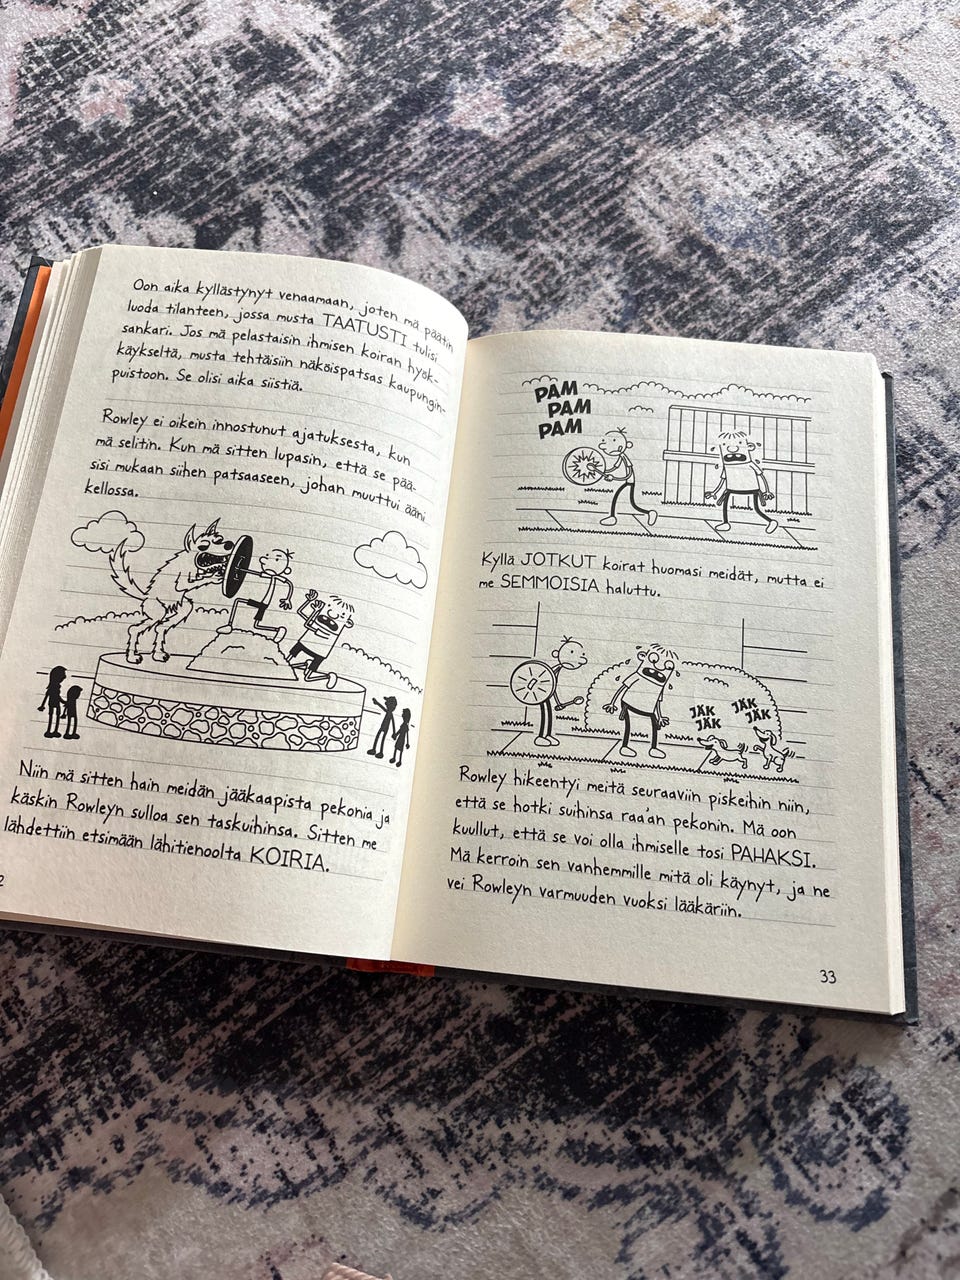 Oon aika kyllästynyt venaamaan, joten mä päätin
luoda tilanteen, jossa musta TAATUSTI tulisi
sankari. Jos mä pelastaisin ihmisen koiran hyök-
käykseltä, musta tehtäisiin näköispatsas kaupungin-
puistoon. Se olisi aika siistiä.
Rowley ei oikein innostunut ajatuksesta, kun
mä selitin. Kun mä sitten lupasin, että se pää-
sisi mukaan siihen patsaaseen, johan muuttui ääni
kellossa.
Niin mä sitten hain meidän jääkaapista pekonia ja
käskin Rowleyn sulloa sen taskuihinsa. Sitten me
lähdettiin etsimään lähitienoolta KOIRIA.
2
PAM
PAM
PAM
Kyllä JOTKUT koirat huomasi meidät, mutta ei
me SEMMOISIA haluttu.
JÄK
JÄK
JÄK
JÄK
Rowley hikeentyi meitä seuraaviin piskeihin niin,
että se hotki suihinsa raa'an pekonin. Mä oon
kuullut, että se voi olla ihmiselle tosi PAHAKSI.
Mä kerroin sen vanhemmille mitä oli käynyt, ja ne
vei Rowleyn varmuuden vuoksi lääkäriin.
33